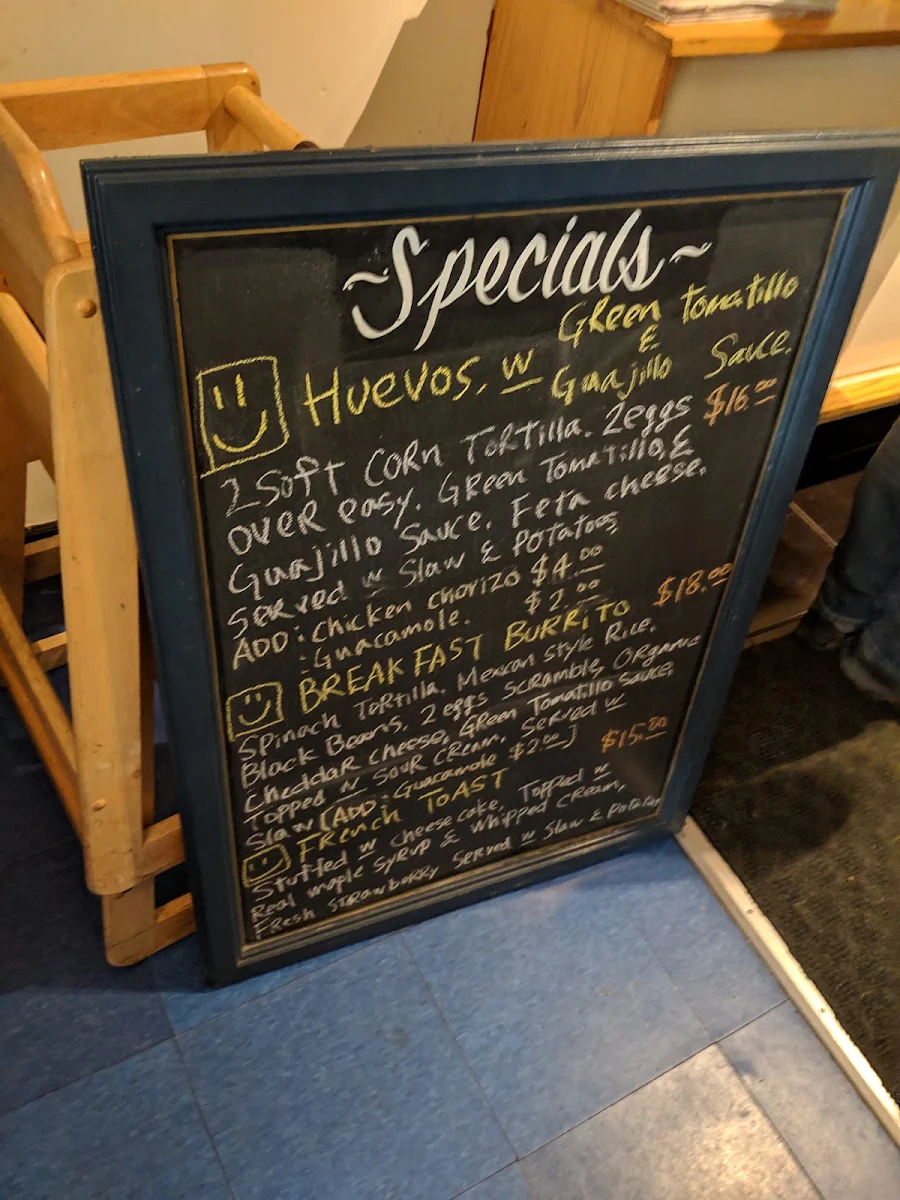 ~Specials~
Huevos, w Green Tomatillo & Guajillo Sauce.
2 Soft Corn Tortilla. 2eggs $16.00
over easy. Green Tomatillo, &
Guajillo Sauce. Feta cheese.
Served w Slaw & Potatoes
ADD: Chicken chorizo $4.00
: Guacamole. $2.00
BREAKFAST BURRITO $18.00
Spinach Tortilla. Mexican Style Rice.
Black Beans, 2 eggs Scramble, Organic
Cheddar Cheese, Green Tomatillo Sauce,
Topped w Sour Cream. Served w
Slaw (ADD: Guacamole $2.00)
French TOAST $15.00
Stuffed w cheese cake, Topped w
Real maple syrup & whipped cream,
Fresh strawberry Served w Slaw & potatoes